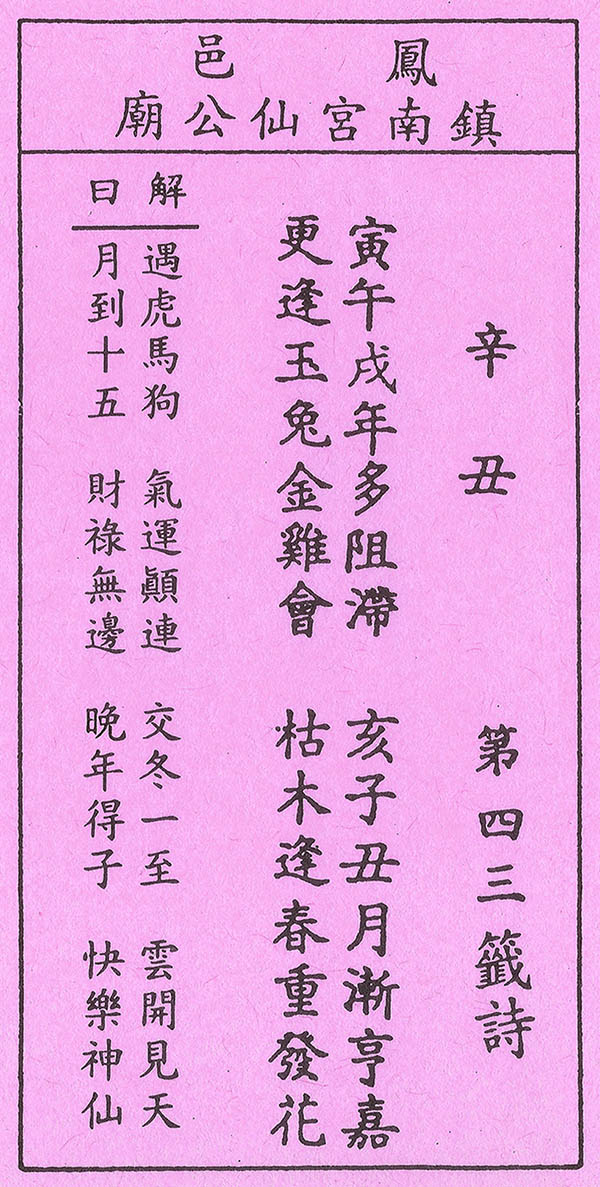 鳳邑
鎮南宮仙公廟
辛丑 第四三籤詩
寅午戌年多阻滯 亥子丑月漸亨嘉
更逢玉兔金雞會 枯木逢春重發花
解曰
遇虎馬狗 氣運顚連 交冬一至 雲開見天
月到十五 財祿無邊 晚年得子 快樂神仙